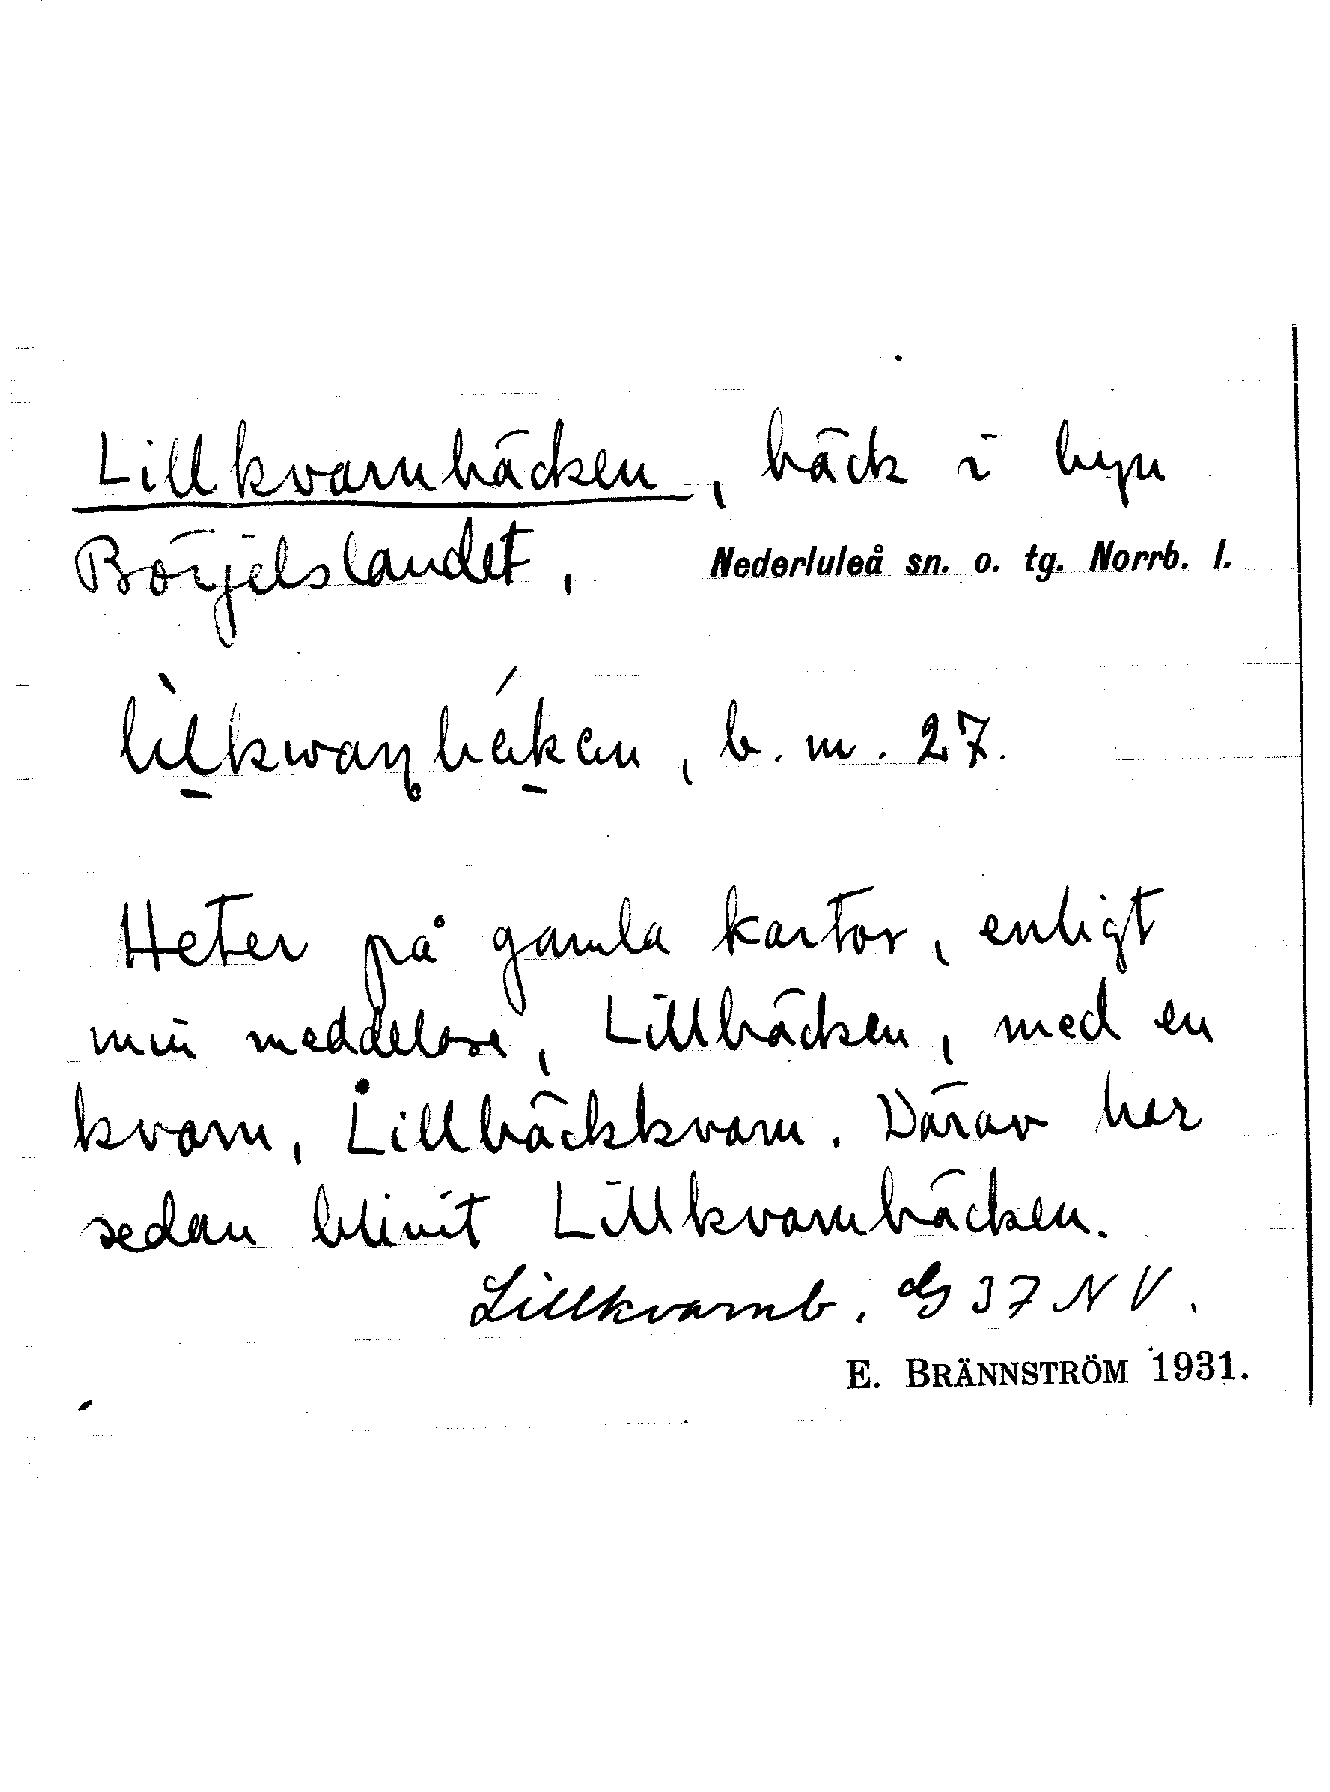 Lillkvarnbäcken, bäck i byn
Börjelslandet, Nederluleå sn. o. tg. Norrb. l.
b. m. 27.
Heter på gamla kartor, enligt
min meddelare, Lillbäcken, med en
kvarn, Lillbäckkvarn. Därav har
sedan blivit Lillkvarnbäcken.
Lillkvarnb. G 37 N V.
E. BRÄNNSTRÖM 1931.